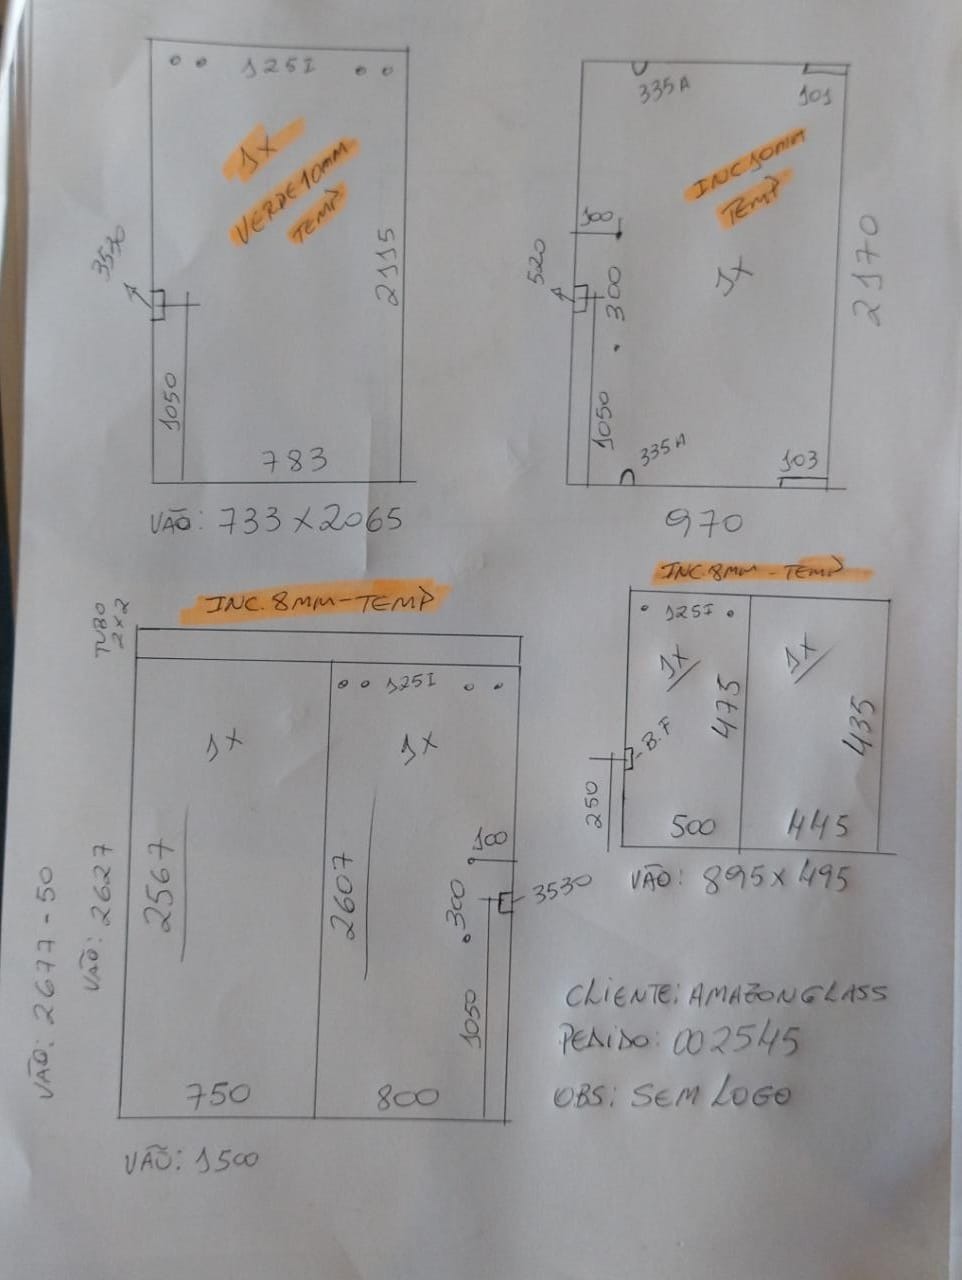 125I
1X
VERDE 10MM
TEMP
3530
2115
1050
783
VÃO: 733 X 2065
335A
101
INC 10MM
TEMP
1X
100
520
300
2170
1050
335A
103
970
INC. 8MM - TEMP
TUBO
2X2
125I
1X
1X
2567
2607
100
3530
300
1050
VÃO: 2677 - 50
VÃO: 2627
750
800
VÃO: 1500
INC. 8MM - TEMP
125I
1X
1X
475
435
B.F
250
500
445
VÃO: 895 X 495
CLIENTE: AMAZONGLASS
PEDIDO: 002545
OBS: SEM LOGO